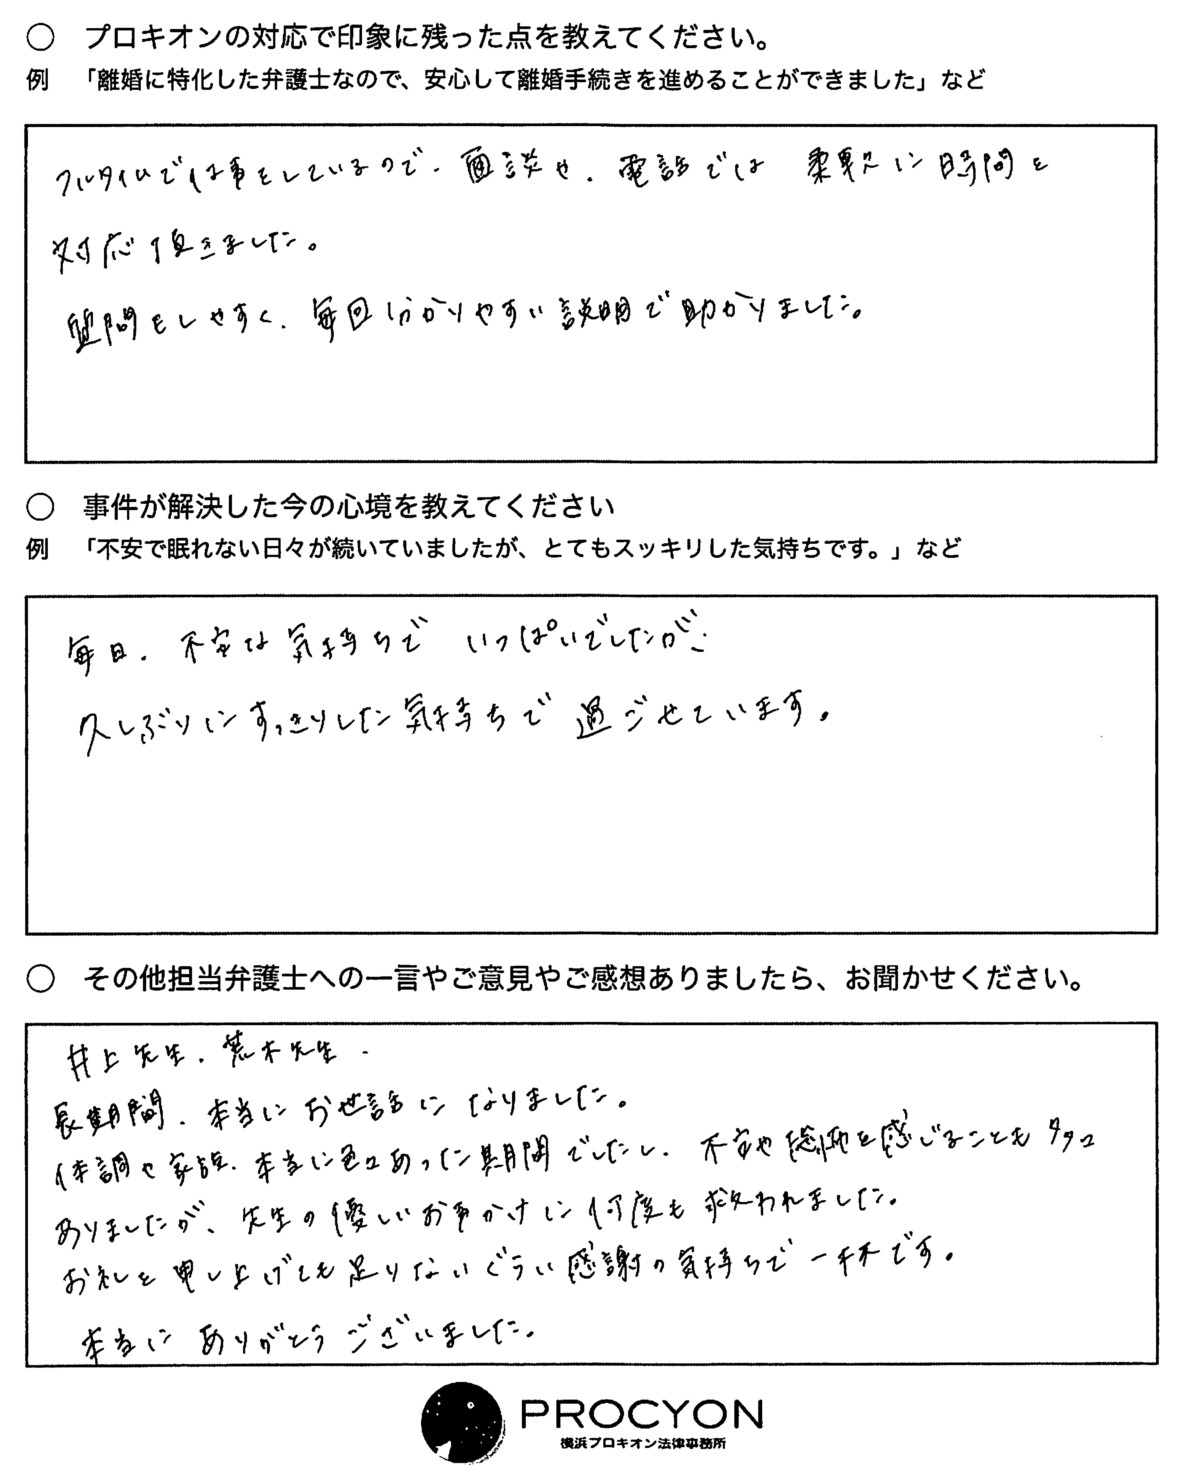 ○ プロキオンの対応で印象に残った点を教えてください。
例 「離婚に特化した弁護士なので、安心して離婚手続きを進めることができました」など
フルタイムで仕事をしているので、面談や、電話では 柔軟に時間を
対応頂きました。
質問もしやすく、毎回分かりやすい説明で助かりました。
○ 事件が解決した今の心境を教えてください
例 「不安で眠れない日々が続いていましたが、とてもスッキリした気持ちです。」など
毎日、不安な気持ちで いっぱいでしたが、
久しぶりにすっきりした気持ちで過ごせています。
○ その他担当弁護士への一言やご意見やご感想ありましたら、お聞かせください。
井上先生、荒木先生、
長期間、本当にお世話になりました。
体調や家族、本当に色々あった期間でしたし、不安や を感じることも多々
ありましたが、先生の優しいお声かけに何度も救われました。
お礼を申し上げても足りないぐらい感謝の気持ちで一杯です。
本当に ありがとうございました。
PROCYON
横浜プロキオン法律事務所